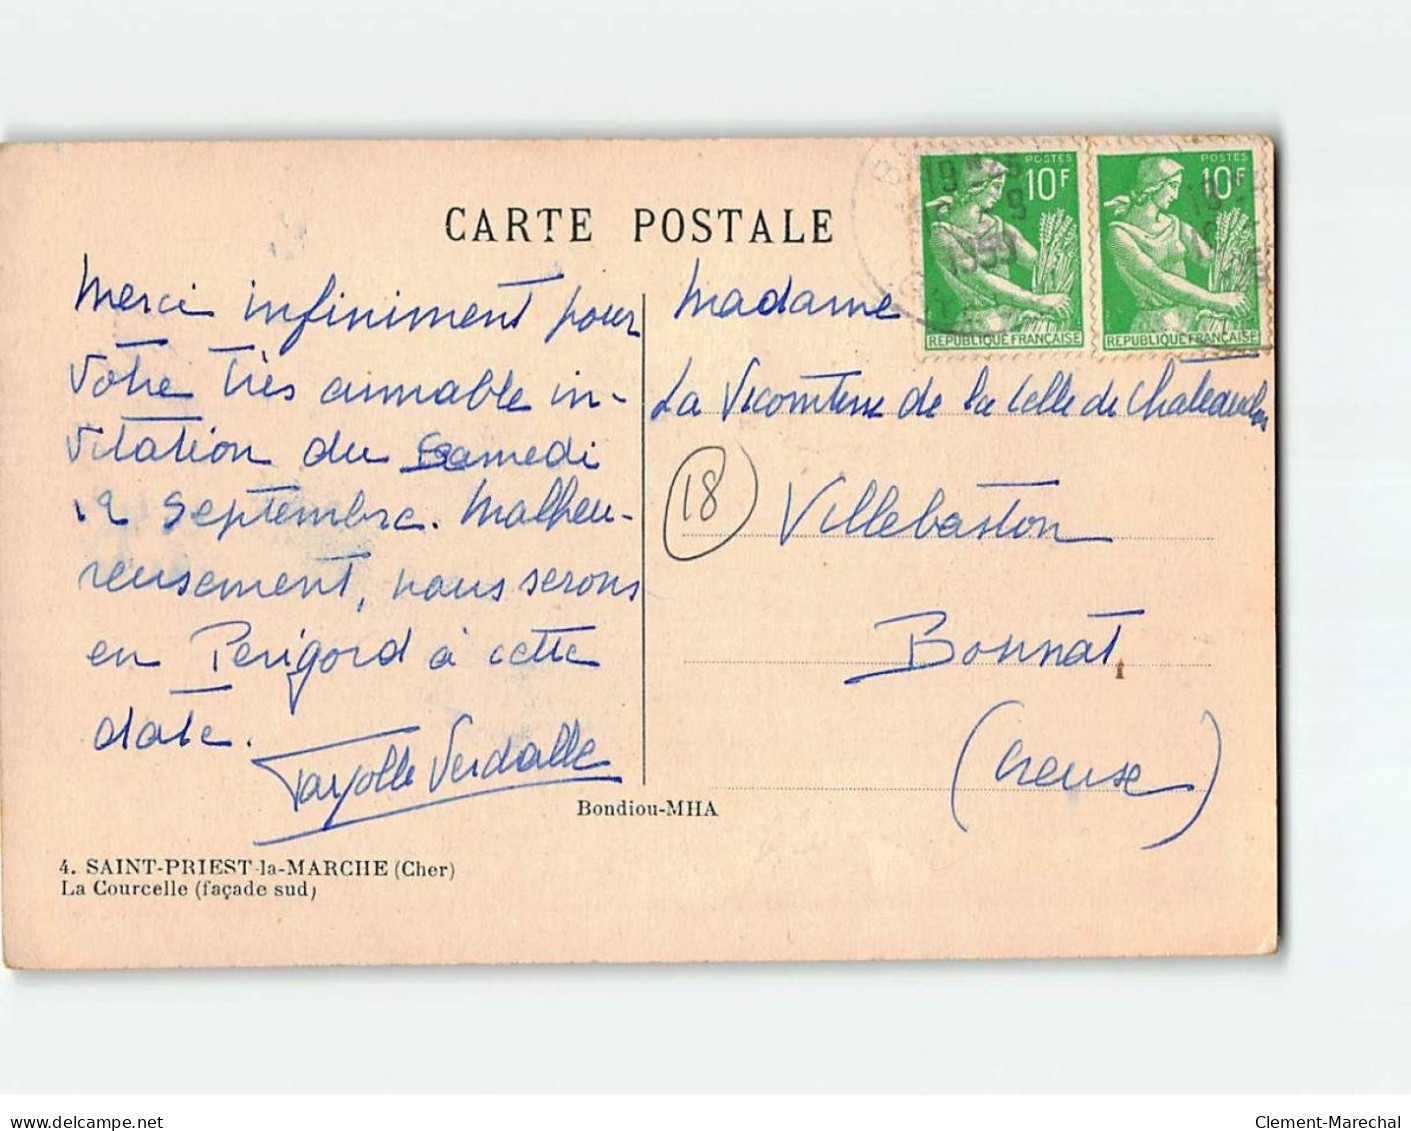 CARTE POSTALE
Merci infiniment pour
votre très aimable in-
vitation du samedi
12 septembre. Malheu-
reusement, nous serons
en Périgord à cette
date.
Verdalle
Madame
La Vicomtesse de la Celle de Châteauclos
18
Villebaston
Bonnat
(Creuse)
POSTES
10F
REPUBLIQUE FRANÇAISE
POSTES
10F
REPUBLIQUE FRANÇAISE
1959
Bondiou-MHA
4. SAINT-PRIEST-la-MARCHE (Cher)
La Courcelle (façade sud)
www.delcampe.net
Clement-Marechal